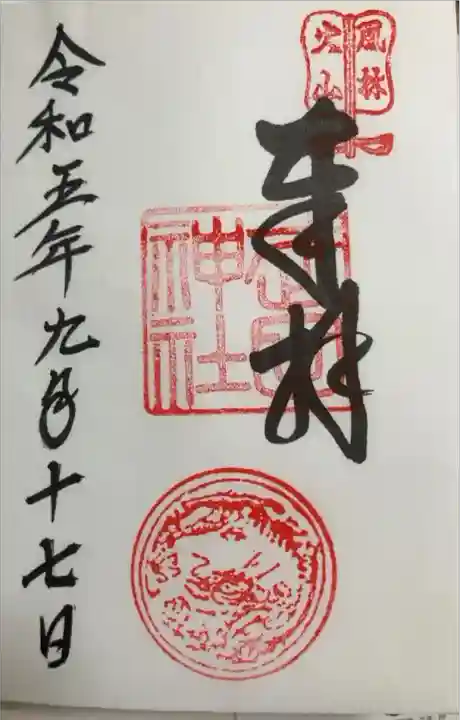 風林
火山
奉拝
武田
神社
令和五年九月十七日